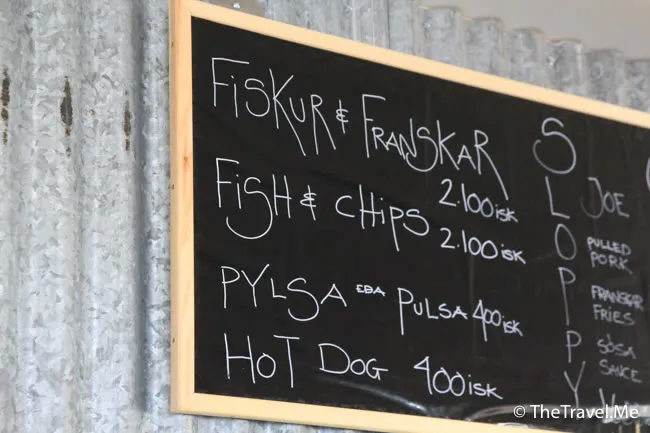 FISKUR & FRANSKAR
2.100 ISK
FISH & CHIPS 2.100 ISK
PYLSA EÐA PULSA 400 ISK
HOT DOG 400 ISK
SLOPPY
JOE
PULLED
PORK
FRANSKAR
FRIES
SÓSA
SAUCE
© TheTravel.Me